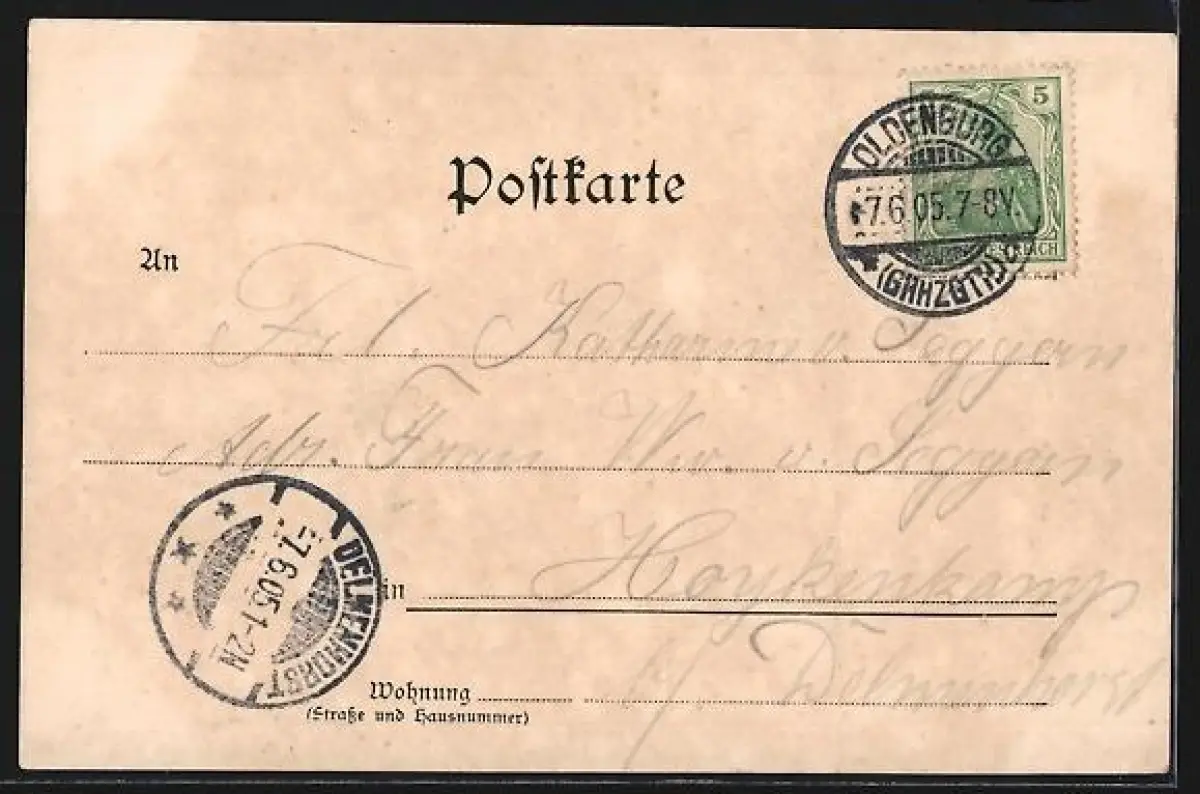 5
OLDENBURG
7.6.05.7-8V.
(GRHZGT)
REICH
Postkarte
An
Frl. Katharine v. Seggern
Adr. Frau Ww. v. Seggern
in Hoykenkamp
b/ Delmenhorst
DELMENHORST
7.6.05.1-2N
Wohnung
(Straße und Hausnummer)